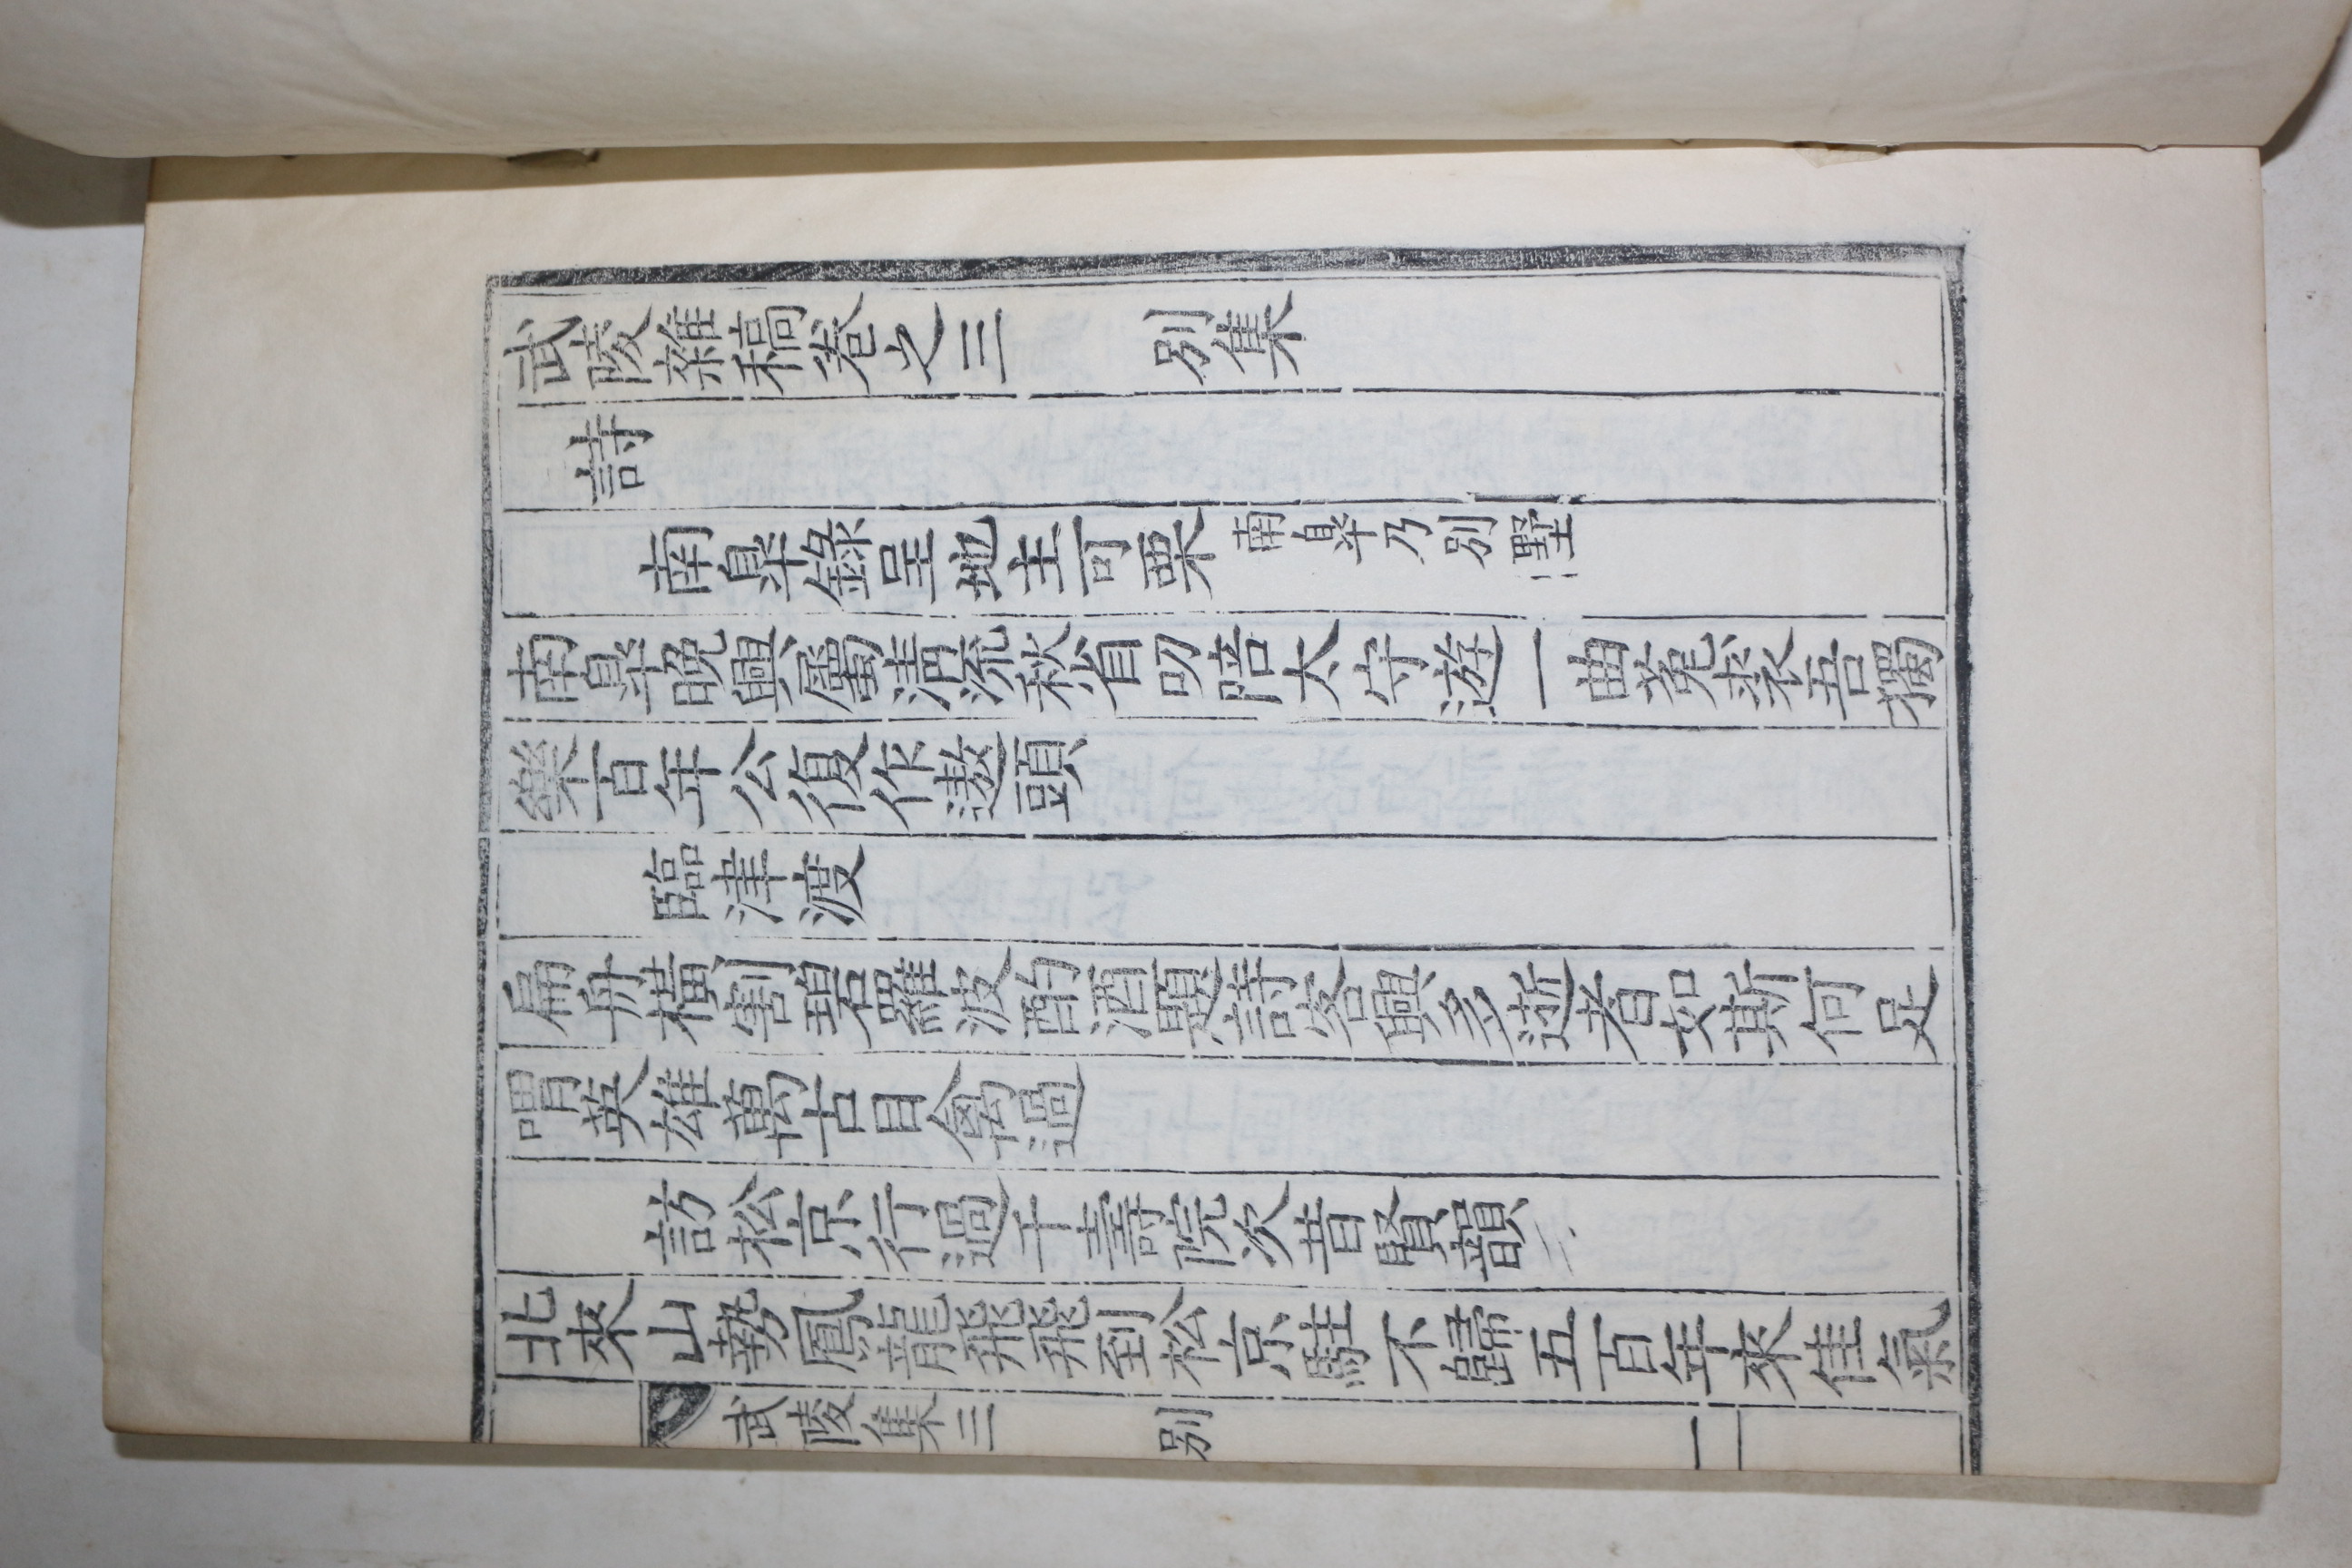 武陵雜稿卷之三　別集
詩
南皐錄呈地主可栗 南皐乃別墅
南皐晚興屬淸流秋省叨陪太守遊一曲菟裘吾獨
樂百年公復作遨頭
臨津渡
扁舟橫割碧羅波酌酒題詩客興多逝者如斯何足
喟英雄萬古目禽過
訪松京行過千壽院次昔賢韻
北來山勢鳳龍飛飛到松京駐不歸五百年來佳氣
武陵集三　別　一